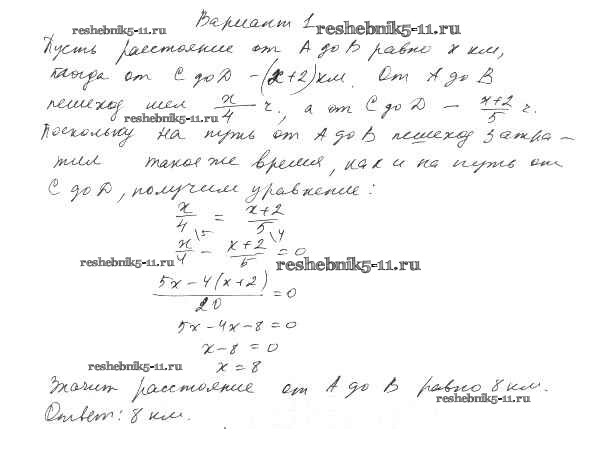 Вариант 1
reshebnik5-11.ru reshebnik5-11.ru
Пусть расстояние от A до B равно x км,
тогда от C до D – (x+2) км. От A до B
пешеход шел x/4 ч., а от C до D – x+2/5 ч.
reshebnik5-11.ru
Поскольку на путь от A до B пешеход затра-
тил такое же время, как и на путь от
C до D, получим уравнение:
x/4 = x+2/5
x/4 \5 – x+2/5 \4 = 0
reshebnik5-11.ru reshebnik5-11.ru
5x – 4(x+2)/20 = 0
5x – 4x – 8 = 0
x – 8 = 0
reshebnik5-11.ru x = 8
Значит расстояние от A до B равно 8 км.
reshebnik5-11.ru
Ответ: 8 км.